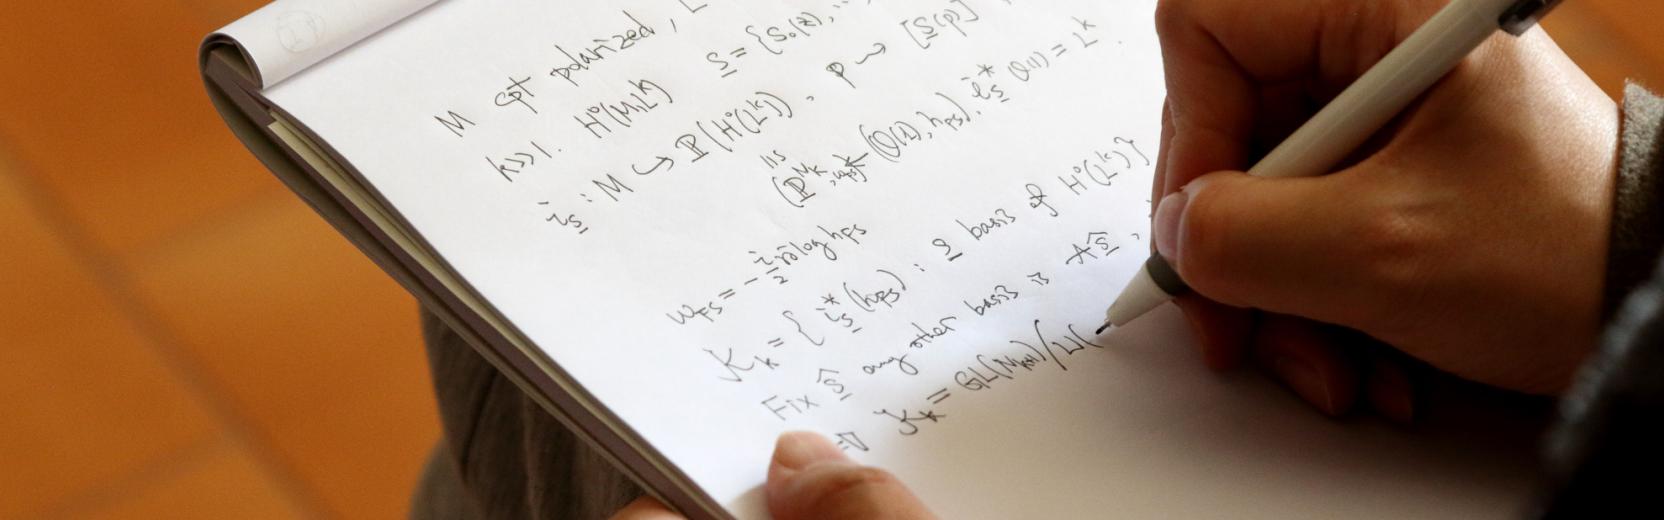 M cpt polarized, L
k>>1. H⁰(M,Lᵏ) s̲ = {S₀(z), ...
i_s̲ : M ↪ ℙ(H⁰(Lᵏ)), p → [s̲(p)]
(ℙ^{N_k}, ω_FS) (O(1), h_FS), i_s̲^* O(1) = Lᵏ.
ω_FS = - i/2 ∂∂̄ log h_FS
K_k = { i_s̲^*(h_FS) : s̲ basis of H⁰(Lᵏ)}
Fix ŝ̲ any other basis is Aŝ̲,
⇒ K_k = GL(N_k+1)/U(